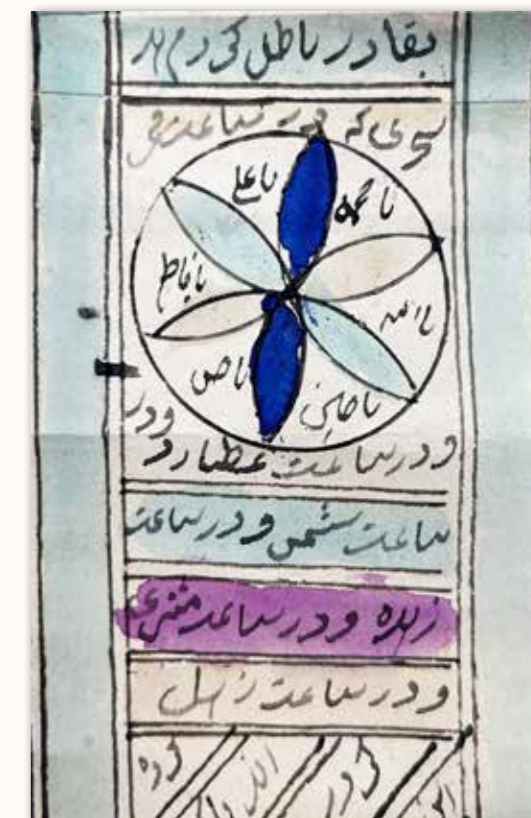 بقادر باطل کردم هر
سحری که در ساعت
یا محمد
یا علی
یا الله
یا فاطمه
یا حسن
یا حسین
و در
و در ساعت عطارد
ساعت شمس و در ساعت
زهره و در ساعت مشتری
و در ساعت زحل